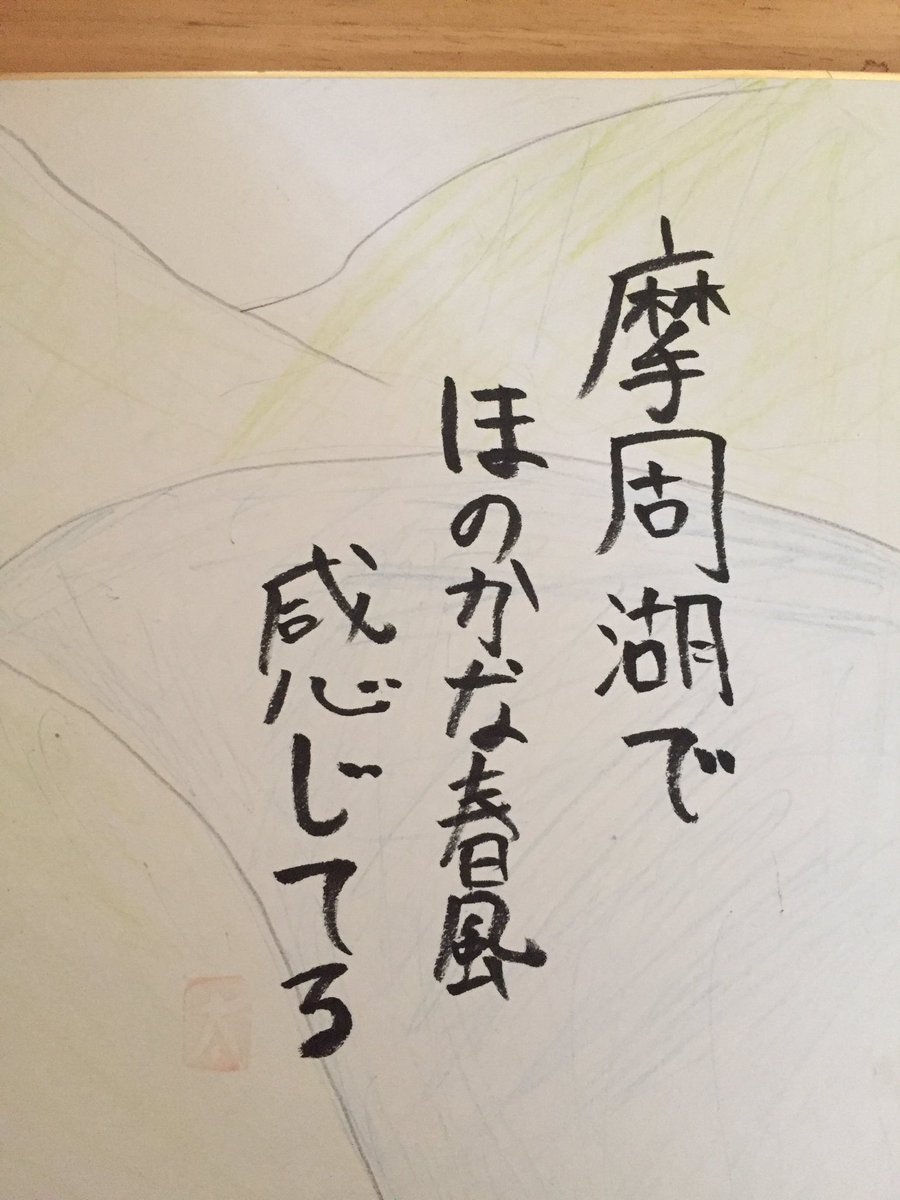 摩周湖で
ほのかな春風
感じてる